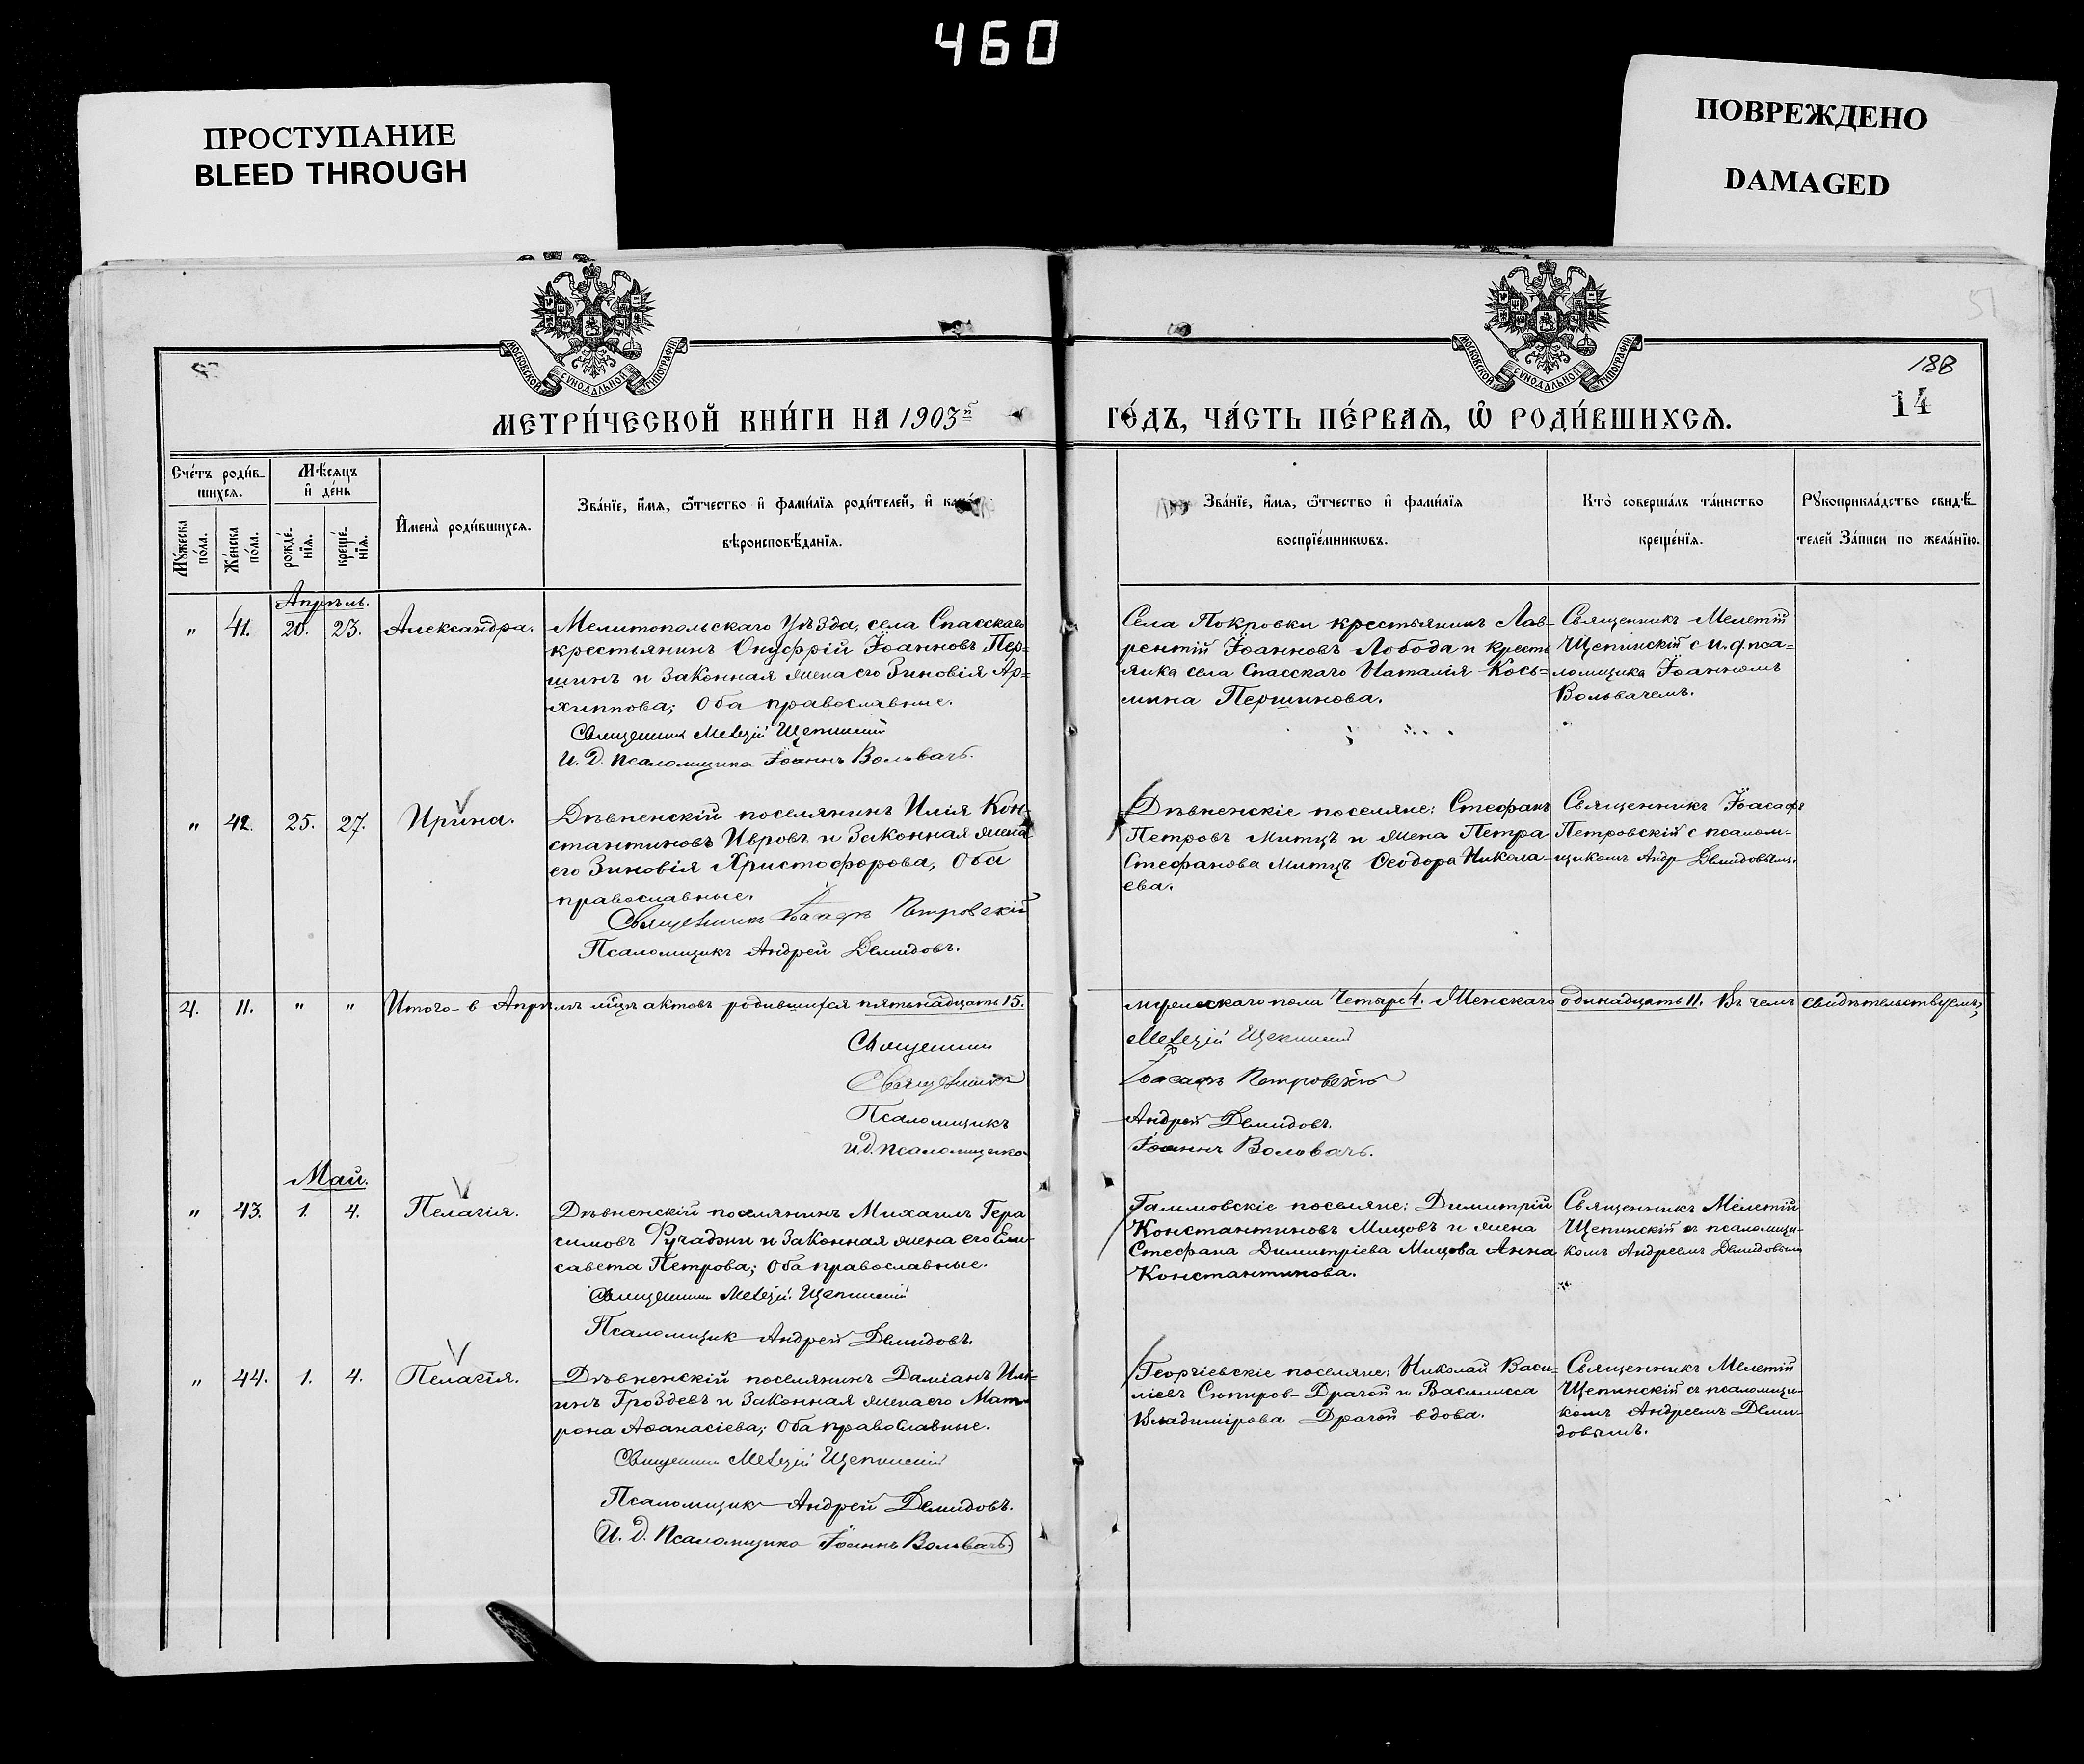 460
ПРОСТУПАНИЕ
BLEED THROUGH
ПОВРЕЖДЕНО
DAMAGED
МОСКОВСКОЙ СѴНОДАЛЬНОЙ ТИПОГРАФІИ
МОСКОВСКОЙ СѴНОДАЛЬНОЙ ТИПОГРАФІИ
51
188
14
МЕТРИ́ЧЕСКОЙ КНИ́ГИ НА 1903й
ГО́ДЪ, ЧА́СТЬ ПЕ́РВАѦ, Ѡ҆ РОДИ́ВШИХСѦ.
Сче́тъ роди́в-
шихсѧ.
Мѣ́сѧцъ
и҆ де́нь
Мꙋ́жеска
по́ла.
Же́нска
по́ла.
рожде́-
нїѧ.
креще́-
нїѧ.
И҆мена̀ роди́вшихсѧ.
Зва́нїе, и҆́мѧ, ѻ҆́тчество и҆ фами́лїѧ роди́телей, и҆
вѣроисповѣ́данїѧ.
Зва́нїе, и҆́мѧ, ѻ҆́тчество и҆ фами́лїѧ
воспрїе́мникѡвъ.
Кто̀ соверша́лъ та́инство
креще́нїѧ.
Рꙋкоприкла́дство свидѣ́-
телей за́писи по жела́нїю.
Апрѣль.
" 41. 20. 23. Александра.
Мелитопольскаго Уѣзда, села Спасскаго
крестьянинъ Онуфрій Іоанновъ Пер-
шинъ и законная жена его Зиновія Ар-
хиппова; оба православные.
Священникъ Мелетій Щепинскій
И. Д. псаломщика Іоаннъ Вольвачъ.
Села Покровки крестьянинъ Лав-
рентій Іоанновъ Лобода и кресть
янка села Спасскаго Наталія Кось-
мина Першинова.
Священникъ Мелетій
Щепинскій с и. д. пса-
ломщика Іоанномъ
Вольвачемъ.
" 42. 25. 27. Ирина.
Дѣвненскій поселянинъ Илія Кон-
стантиновъ Ивровъ и законная жена
его Зиновія Христофорова, оба
православные.
Священникъ Іоасафъ Петровскій
Псаломщикъ Андрей Демидовъ.
Дѣвненскіе поселяне: Стефанъ
Петровъ Митцъ и жена Петра
Стефанова Митцъ Ѳеодора Никола-
ева.
Священникъ Іоасафъ
Петровскій с псалом-
щикомъ Андр Демидовымъ.
4. 11. " " Итого в Апрѣлѣ мцѣ актовъ родившихся пятьнадцать 15.
мужескаго пола четыре 4. Женскаго одинадцать 11. Въ чемъ свидѣтельствуемъ;
Священникъ Мелетій Щепинскій
Священникъ Іоасафъ Петровскій
Псаломщикъ Андрей Демидовъ.
И. Д. псаломщика Іоаннъ Вольвачъ.
Май.
" 43. 1. 4. Пелагія.
Дѣвненскій поселянинъ Михаилъ Гера
симовъ Фучаджи и законная жена его Ели-
савета Петрова; оба православные.
Священникъ Мелетій Щепинскій
Псаломщик Андрей Демидовъ.
Галимовскіе поселяне: Димитрій
Константиновъ Мицовъ и жена
Стефана Димитріева Мицова Анна
Константинова.
Священникъ Мелетій
Щепинскій съ псаломщи-
комъ Андреемъ Демидовымъ
" 44. 1. 4. Пелагія.
Дѣвненскій поселянинъ Даміанъ Илі-
инъ Гроздевъ и законная жена его Мат-
рона Аѳанасіева; оба православные.
Священникъ Мелетій Щепинскій
Псаломщикъ Андрей Демидовъ.
И. Д. псаломщика Іоаннъ Вольвачъ
Георгіевскіе поселяне: Николай Васи-
ліевъ Драгой и Василисса
Владимірова Драгой вдова.
Священникъ Мелетій
Щепинскій съ псаломщи-
комъ Андреемъ Деми-
довымъ.